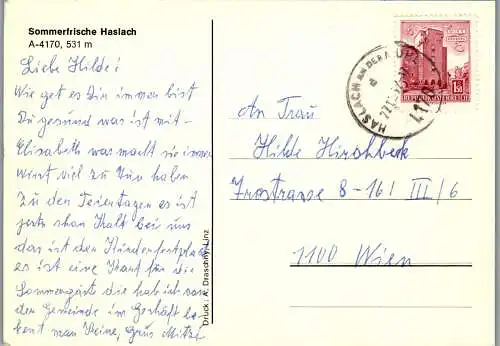 Sommerfrische Haslach
A-4170, 531 m
Liebe Hilde!
Wie get es Dir immer bist
Du gesund was ist mit
Elisabeth was macht sie immer
wirst viel zu Tun haben
Zu den Feiertagen es ist
jetz schon Kalt bei uns
das ist der Kinderfestplatz
es ist eine Karte für die
Sommergäste die hab ich von
der Gemeinde im Geschäft be-
kent man Keine, Grus Mitzi
Druck: A. Draschny, Linz
HASLACH AN DER
4170
REPUBLIK ÖSTERREICH
An Frau
Hilde Hirschbeck
8-16/ III/6
1100 Wien